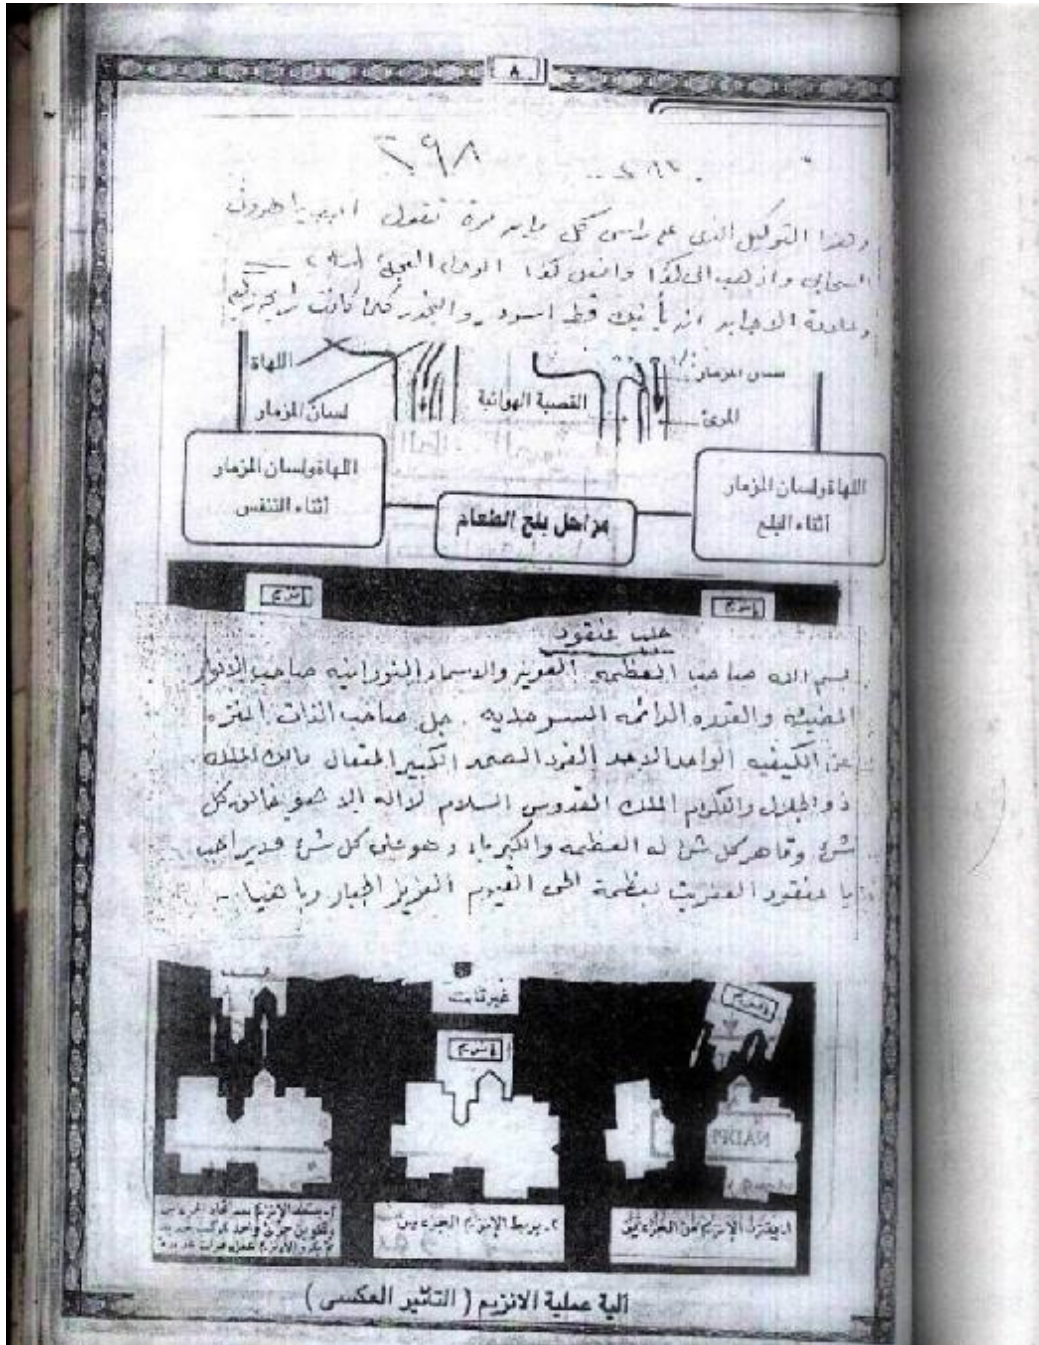 ٨
٢٩٨
وهذا التوكيل الذي على رأس كل مايه مرة تقول اجب يا هرون
السحابي واذهب الى كذا وافعل كذا الوحا العجل الساعة
وعلامة الاجابه انه يأتيك قط اسود والبخور
اللهاة
لسان المزمار
القصبة الهوائية
لسان المزمار
المرئ
اللهاة ولسان المزمار
أثناء التنفس
مراحل بلع الطعام
اللهاة ولسان المزمار
أثناء البلع
إنزيم
إنزيم
جلب عنقود
بسم الله صاحب العظمه العزيز والاسماء النورانيه صاحب الانوار
المضيئه والقدره الدائمه السرمديه جل صاحب الذات المنزه
عن الكيفيه الواحد الاحد الفرد الصمد الكبير المتعال مالك الملك
ذو الجلال والاكرام الملك القدوس السلام لا اله الا هو خالق كل
شئ وقاهر كل شئ له العظمه والكبرياء وهو على كل شئ قدير اجب
يا عنقود العفريت بعظمة الحى القيوم العزيز الجبار وباهيا
غير ثابت
إنزيم
إنزيم
١- يقترب الإنزيم من الجزءين
٢- يربط الإنزيم الجزءين
٣- ينفصل الإنزيم بعد اتحاد الجزءين
آلية عملية الانزيم ( التأثير العكسى )